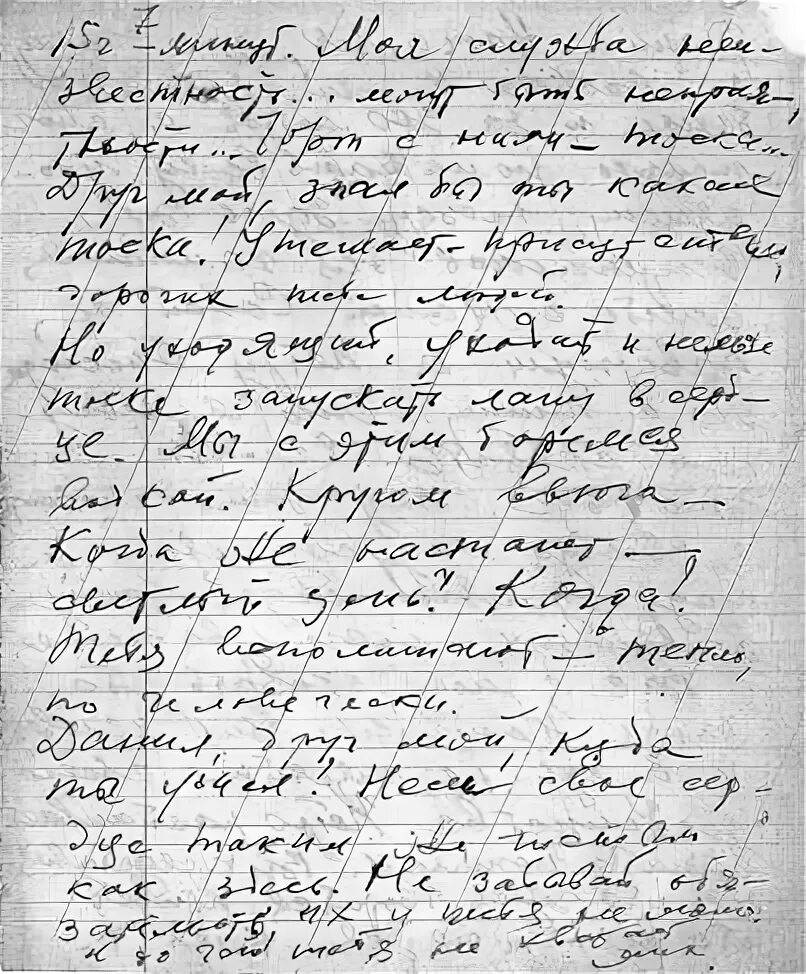 15 г 7 минут. Моя служба неи-
звестность... могут быть неприят-
ности... Чорт с ними – тоска...
Друг мой, знал бы ты какая
тоска! Утешает – присутствие
дорогих тебе людей.
Но уходящий, уходит и нельзя
тоске запускать лапу в серд-
це. Мы с этим боремся
водкой. Кругом вьюга –
Когда же настанет –
светлый день? Когда!
Тебя вспоминают – тепло,
по человечески.
Данил, друг мой, куда
ты уехал! Неси свое сер-
дце таким же
как здесь. Не забывай обя-
их и тебя не
тебя не хватает